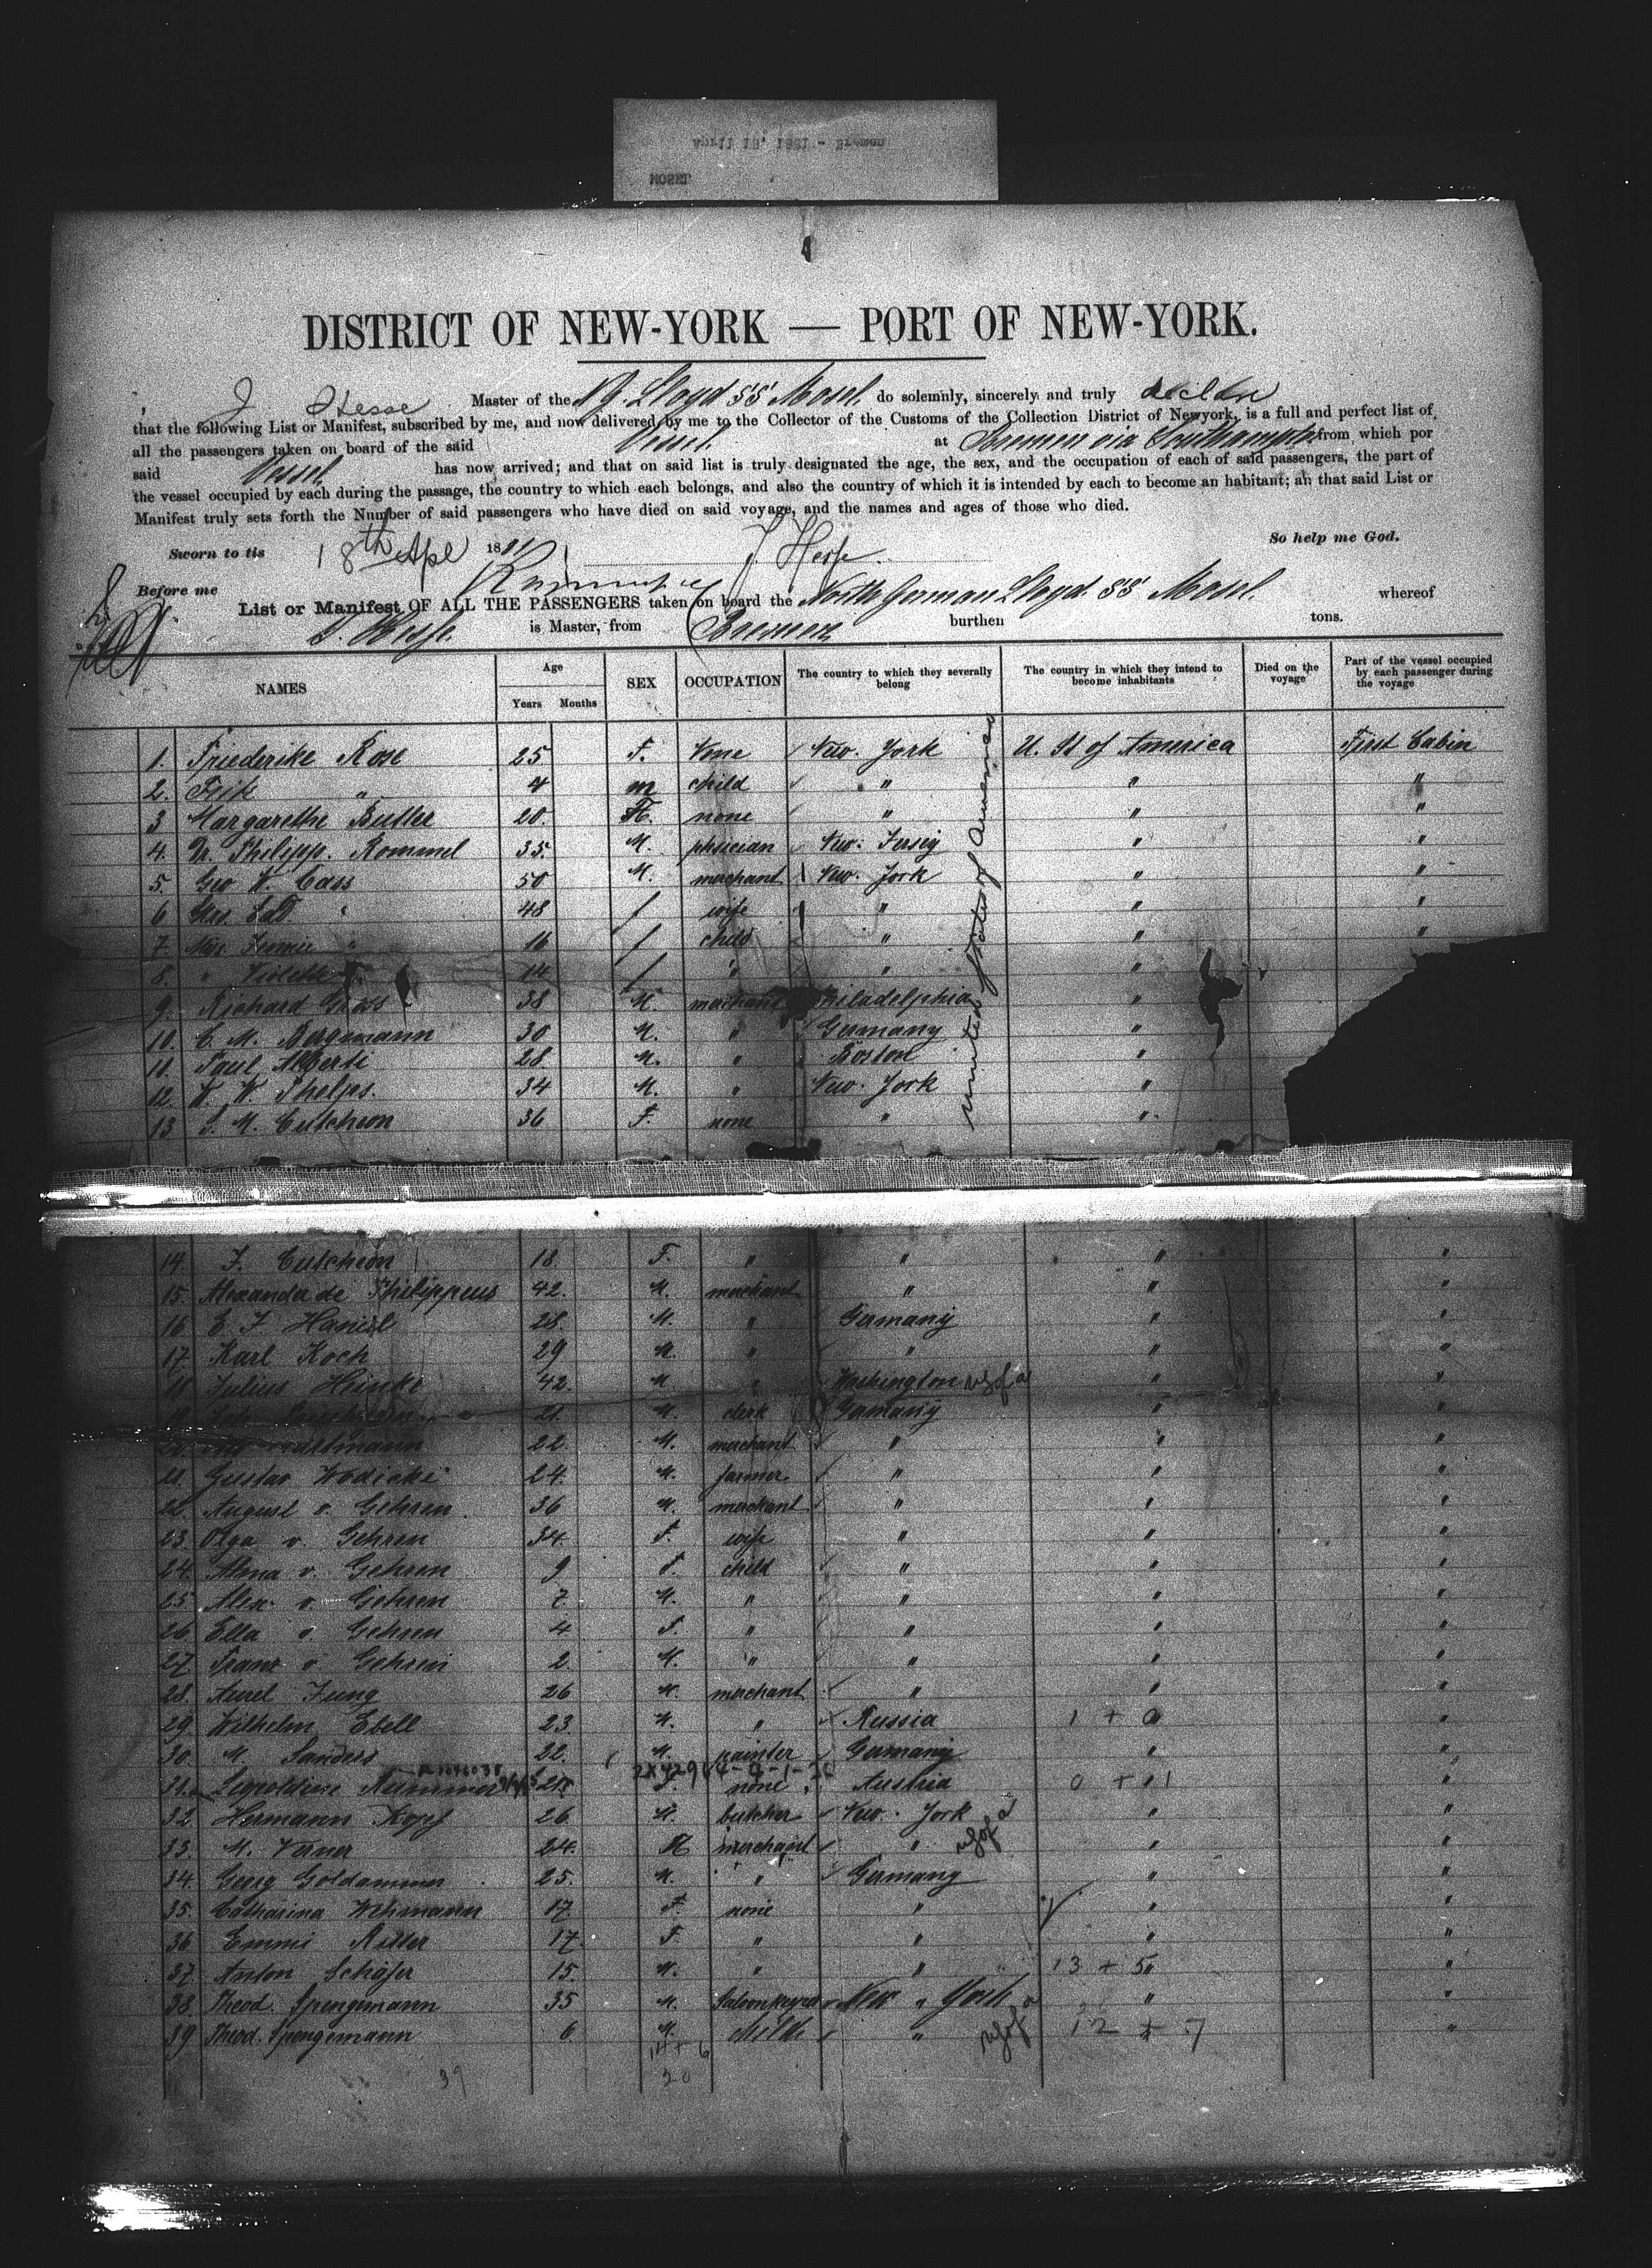 April 18, 1881 - Bremen
MOSEL
DISTRICT OF NEW-YORK — PORT OF NEW-YORK.
J Hesse Master of the N. G. Lloyd SS Mosel do solemnly, sincerely and truly declare
that the following List or Manifest, subscribed by me, and now delivered by me to the Collector of the Customs of the Collection District of Newyork, is a full and perfect list of
all the passengers taken on board of the said Vessel at Bremen via Southampton from which por
said Vessel has now arrived; and that on said list is truly designated the age, the sex, and the occupation of each of said passengers, the part of
the vessel occupied by each during the passage, the country to which each belongs, and also the country of which it is intended by each to become an habitant; an that said List or
Manifest truly sets forth the Number of said passengers who have died on said voyage, and the names and ages of those who died.
Sworn to tis 18th Apl 1881 J. Hesse So help me God.
Before me
List or Manifest OF ALL THE PASSENGERS taken on board the North German Lloyd SS Mosel whereof
J. Hesse is Master, from Bremen burthen tons.
NAMES Age Years Months SEX OCCUPATION The country to which they severally belong The country in which they intend to become inhabitants Died on the voyage Part of the vessel occupied by each passenger during the voyage
United States of America
1. Friederike Rose 25 F. None New-York U. St of America First Cabin
2. Erik " 4 m child " " "
3 Margarethe Butler 20. F. none " " "
4. Dr. Philipp. Rommel 35. M. phsician New-Jersey " "
5. Geo W. Cass 50 M. merchant New-York " "
6 Mrs. " 48 f wife " " "
7. Miss. Fennie " 16 f child " " "
8. " " 14 f " " "
9. Richard Gross 38 M. merchant Philadelphia "
10. C. M. Bergmann 30 M. " Germany "
11. Paul Alberti 28. M. " Boston "
12 W. W. Phelps. 34 M. " New-York "
13 S. M. Cutcheon 36 F. none " "
14. F. Cutcheon 18. F. " " " "
15. Alexander de Philippeus 42. M. merchant " " "
16 E. F. Hanisl 28. M. " Germany " "
17. Karl Koch 29 M. " " " "
18 Julius Heinke 42. M. " Washington usofa " "
19. 21. M. clerk Germany " "
20. 22. M. merchant " " "
21. Gustav Wodicki 24. M. farmer " " "
22. August v. Gehren 36 M. merchant " " "
23. Olga v. Gehren 34. F. wife " " "
24. Alma v. Gehren 9 F. child " " "
25 Alex v. Gehren 7. M. " " " "
26 Ella v. Gehren 4. F. " " " "
27 Franz v Gehren 2. M. " " " "
28. Aurel Jung 26 M. merchant " " "
29. Wilhelm Ebell 23. M. " Russia 1 + 0 "
30. M. Sanders 22. M. painter Germany " "
31. Leopoldine none Austria 0 + 1 "
32 Hermann Kopf 26. M. butcher New-York usofa " "
33. M. Verner 24. M merchant " " "
34. Georg Goldammer 25. M. " Germany " "
35. Catharina Wehmann 17. F. none " " "
36. Emmi Ritter 17. F. " " " "
37. Anton Schäfer 15. M. " " 13 + 5 "
38. Theod. Spengemann 35 M. Saloonkeeper New York " "
39 Theod. Spengemann 6. M. child " usofa 12 + 7 "
14 + 6
39 20